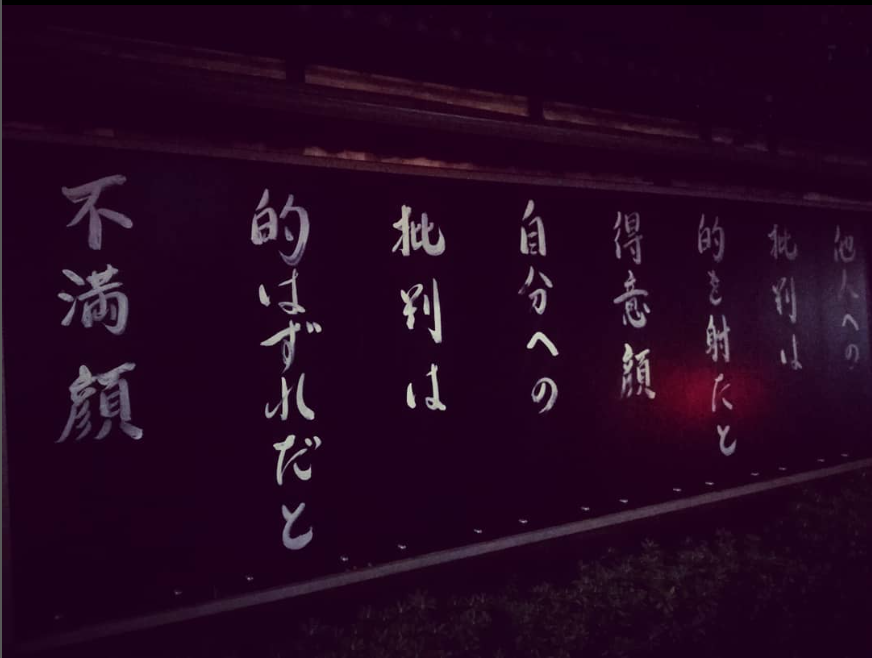 他人への
批判は
的を射たと
得意顔
自分への
批判は
的はずれだと
不満顔